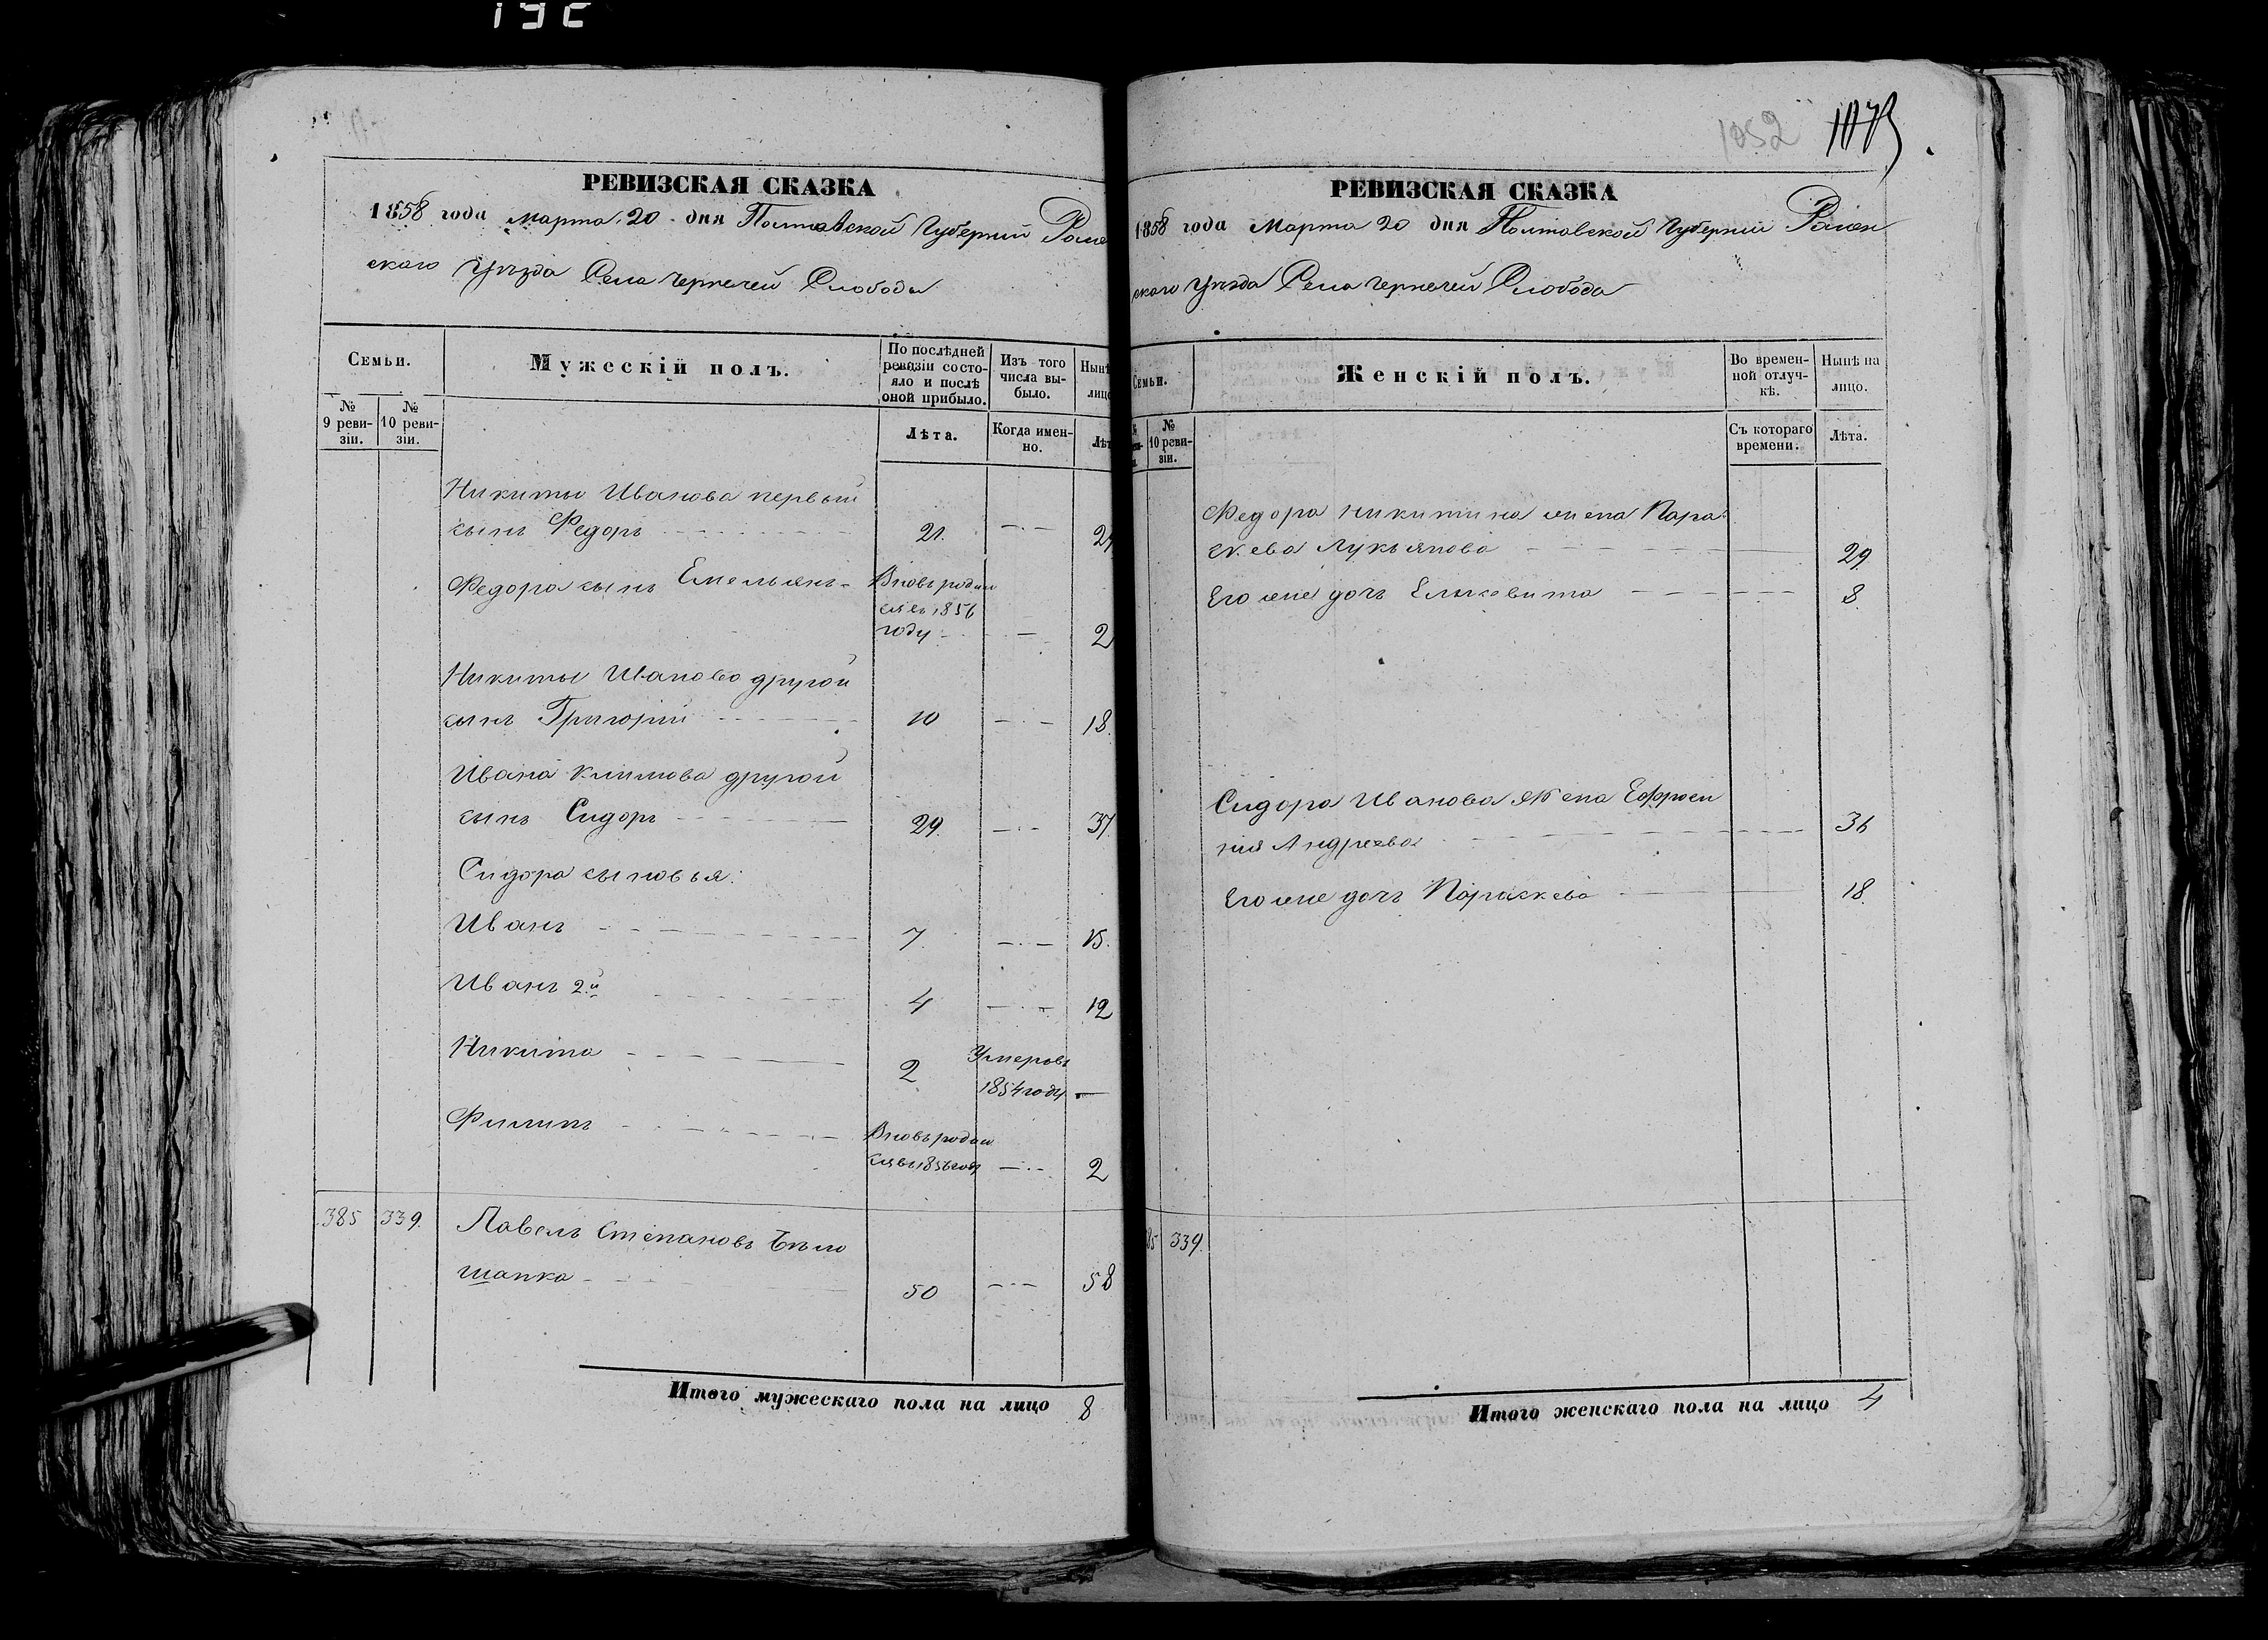 1052 1073
РЕВИЗСКАЯ СКАЗКА
1858 года Марта 20 дня Полтавской Губерніи Роме
скаго Уѣзда Села Чернечей Слободы
Семьи.
Мужескій полъ.
По послѣдней ревизіи состояло и послѣ оной прибыло.
Изъ того числа выбыло.
Нынѣ лицо
№ 9 ревизіи.
№ 10 ревизіи.
Лѣта.
Когда именно.
Лѣт
Никиты Иванова первый
сынъ Федоръ 21. 29
Федора сынъ Емельянъ Вновь родил
ся въ 1856
году 2
Никиты Иванова другой
сынъ Григорій 10 18.
Ивана Климова другой
сынъ Сидоръ 29. 37
Сидора сыновья:
Иванъ 7. 15.
Иванъ 2й 4 12
Никита 2 Умеръ въ
1854 году
Филипъ Вновь родил
ся въ 1856 году 2
385 339. Павелъ Степановъ Бѣло
шапка 50 58
Итого мужескаго пола на лицо 8
РЕВИЗСКАЯ СКАЗКА
1858 года Марта 20 дня Полтавской Губерніи Ромен
скаго Уѣзда Села Чернечей Слободы
Семьи.
Женскій полъ.
Во временной отлучкѣ.
Нынѣ на лицо.
№ 10 ревизіи.
Съ котораго времени.
Лѣта.
Федора Никитина жена Пара
скева Лукьянова 29
Его же дочь Елисавита 8.
Сидора Иванова жена Ефроси
нія Андреева 36
Его же дочь Параскева 18.
85 339.
Итого женскаго пола на лицо 4